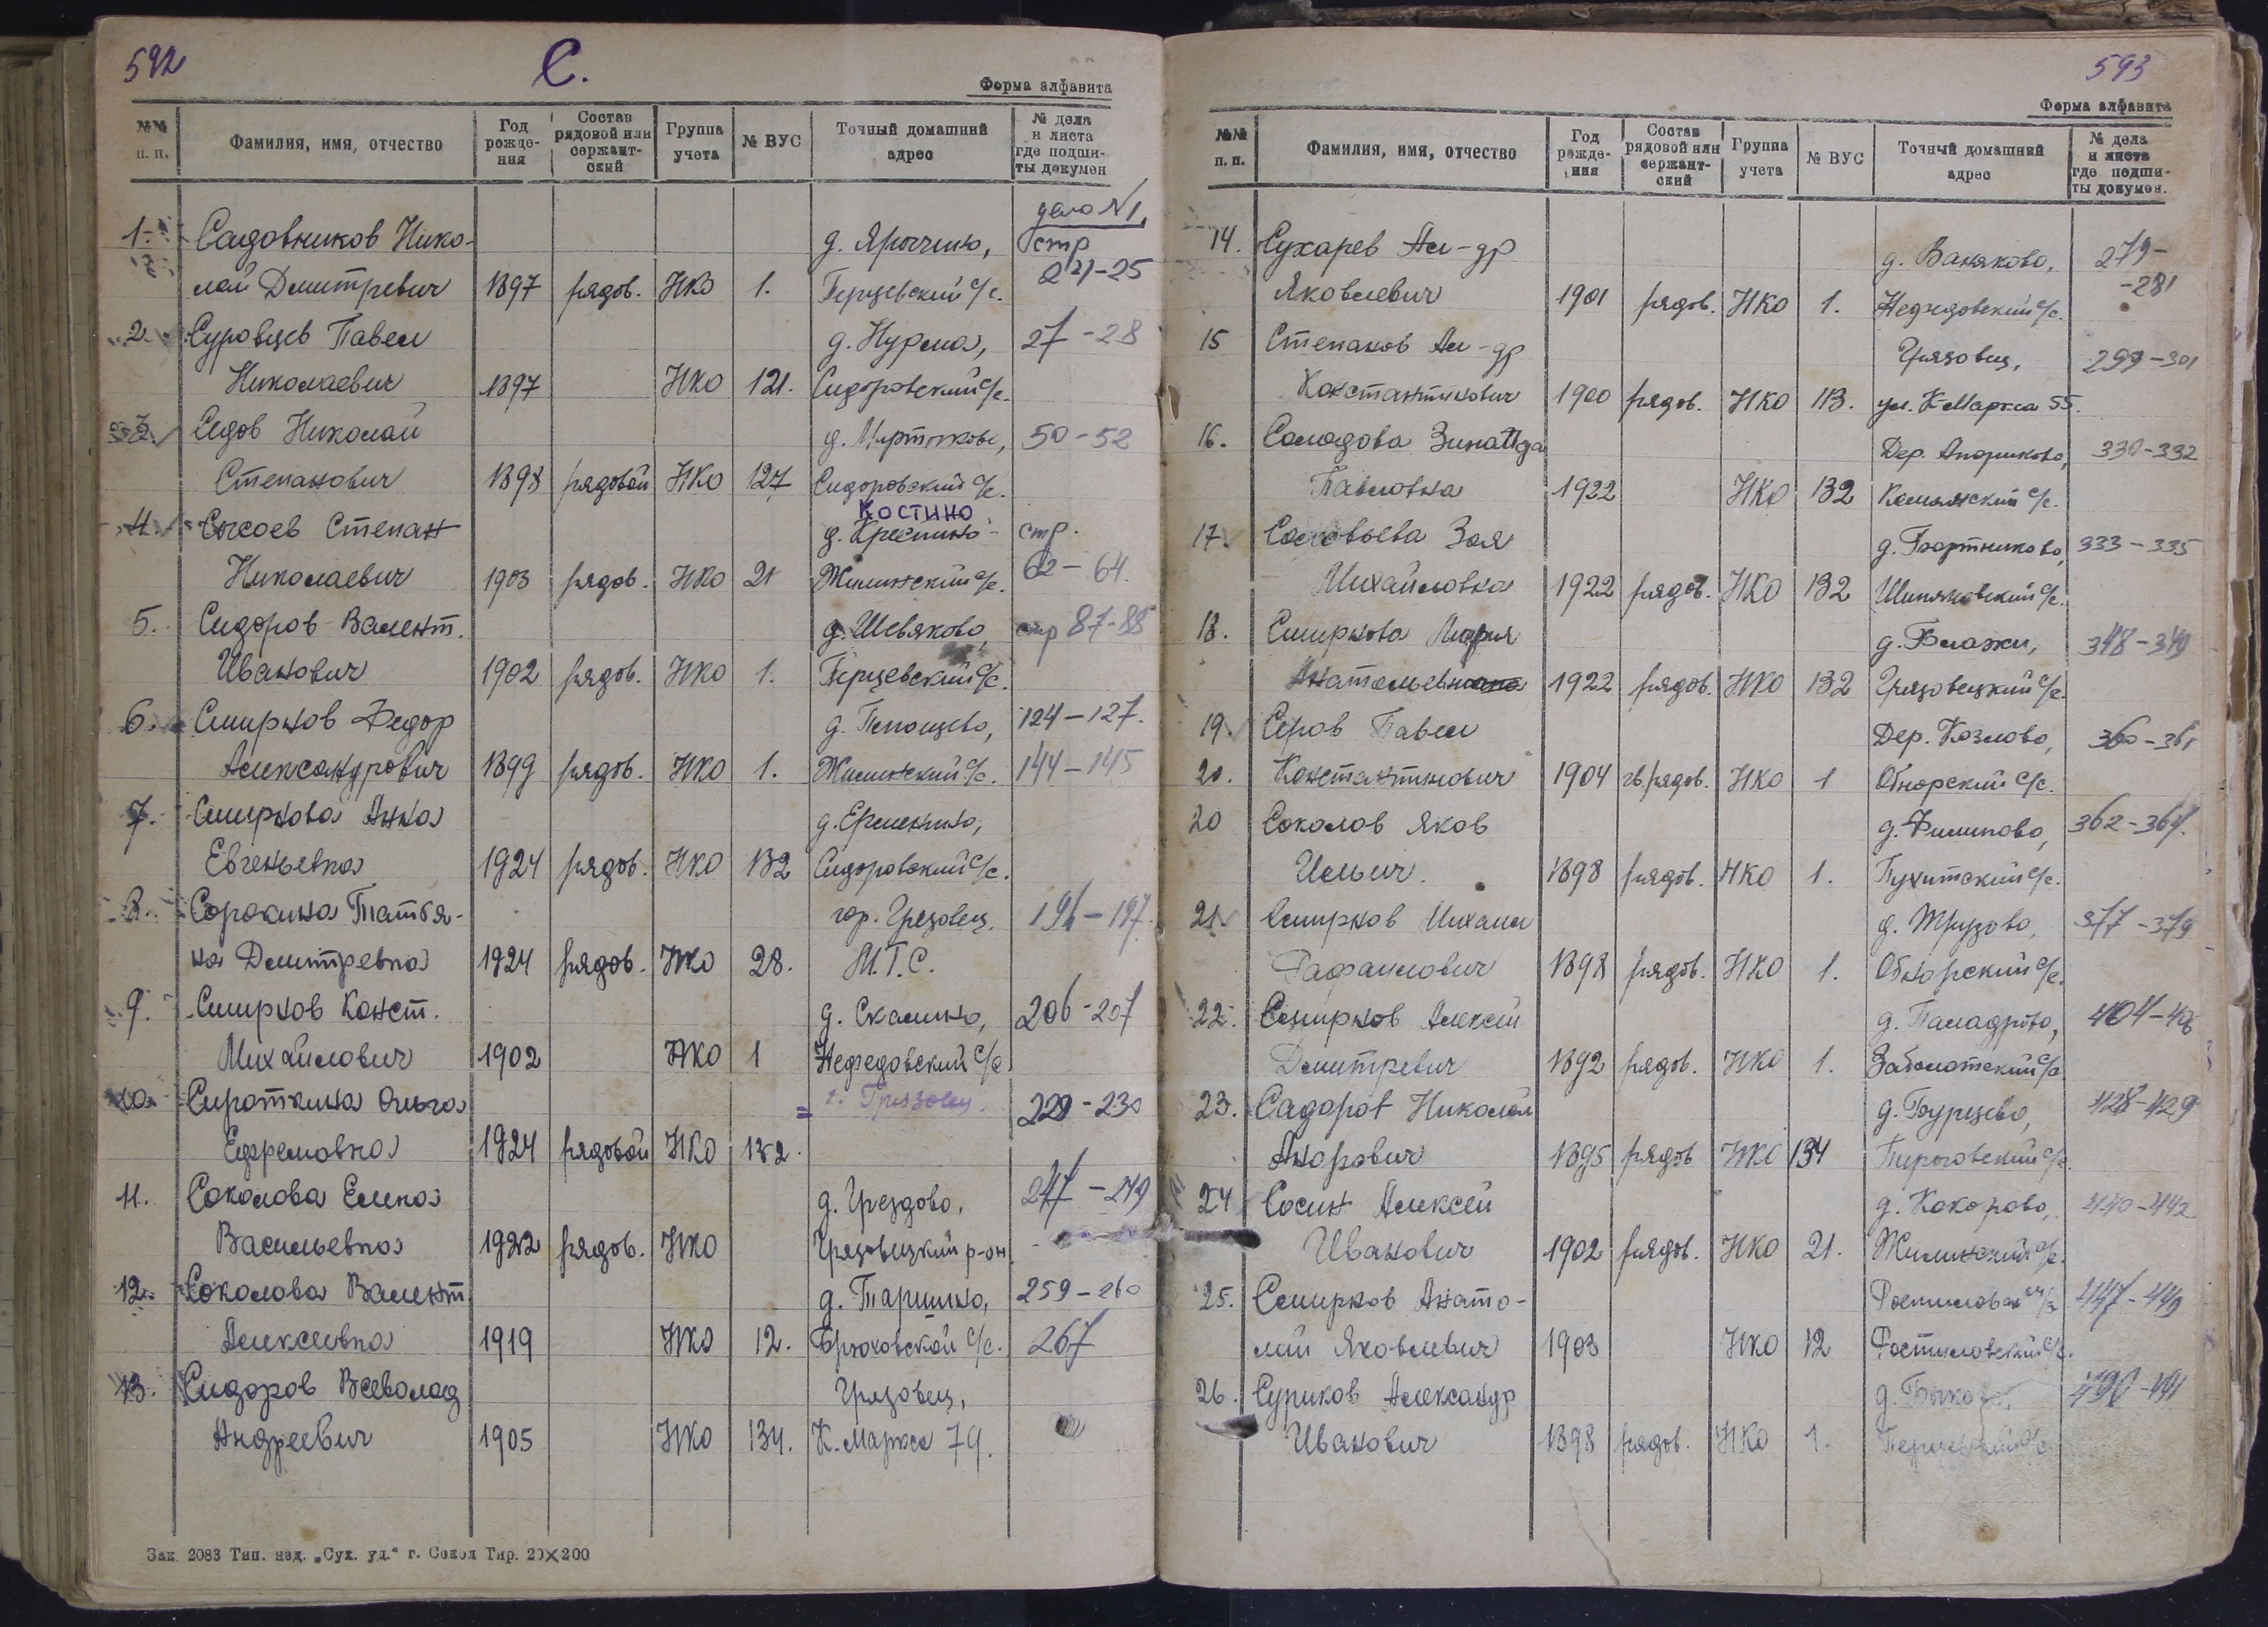 592
С.
Форма алфавита
№№ п. п. Фамилия, имя, отчество Год рожде- ния Состав рядовой или сержант- ский Группа учета № ВУС Точный домашний адрес № дела и листа где подши- ты докумен
дело №1,
1. Садовников Нико- д. Ярыгино, стр
лай Дмитревич 1897 рядов. НКО 1. Перцевский с/с. 221-25
2. Суровцев Павел д. Нурма, 27-28
Николаевич 1897 НКО 121. Сидоровский с/с.
3. Седов Николай д. Мартюково, 50-52
Степанович 1898 рядовой НКО 127 Сидоровский с/с.
Костино
4. Сысоев Степан д. Креснино стр.
Николаевич 1903 рядов. НКО 21 Жилинский с/с. 62-64.
5. Сидоров Валент. д. Шевяково, стр 87-88
Иванович 1902 рядов. НКО 1. Перцевский с/с.
6. Смирнов Федор д. 124-127.
Александрович 1899 рядов. НКО 1. Жилинский с/с. 144-145
7. Смирнова Анна д. Ермекино,
Евгеньевна 1924 рядов. НКО 132 Сидоровский с/с.
8. Сорокина Татья- гор. Грязовец. 196-197.
на Дмитревна 1924 рядов. НКО 28. М.Т.С.
9. Смирнов Конст. д. Скалино, 206-207
Михайлович 1902 НКО 1 Нефедовский с/с
10. Сироткина Ольга г. Грязовец. 229-230
Ефремовна 1924 рядовой НКО 132.
11. Соколова Елена д. Грездово. 247-249
Васильевна 1922 рядов. НКО Грязовецкий р-он.
12. Соколова Валент. д. Таршино, 259-260
Алексеевна 1919 НКО 12. Брюховской с/с. 267
13. Сидоров Всеволод Грязовец,
Андреевич 1905 НКО 134. К. Маркса 79.
Зак. 2083 Тип. изд. „Сух. уд.“ г. Сокол Тир. 20×200
593
Форма алфавита
№№ п. п. Фамилия, имя, отчество Год рожде- ния Состав рядовой или сержант- ский Группа учета № ВУС Точный домашний адрес № дела и листа где подши- ты докумен.
14. Сухарев Ал-др д. Ваняково, 279-
Яковлевич 1901 рядов. НКО 1. Нефедовский с/с. -281
15 Степанов Ал-др Грязовец, 299-301
Константинович 1900 рядов. НКО 113. ул. К Маркса 55.
16. Солодова Зинаида Дер. Анориково, 330-332
Павловна 1922 НКО 132 Комьянский с/с.
17. Соловьева Зоя д. Бортниково, 333-335
Михайловна 1922 рядов. НКО 132 Шиляковский с/с.
18. Смирнова Мария д. Блажки, 348-349
Анатольевна 1922 рядов. НКО 132 Грязовецкий с/с.
19. Серов Павел Дер. Козлово, 360-361
20. Константинович 1904 гв. рядов. НКО 1 Обнорский с/с.
20 Соколов Яков д. Филипово, 362-364.
Ильич. 1898 рядов. НКО 1. Пухитский с/с.
21. Смирнов Михаил д. Трузово, 377-379
Рафаилович 1898 рядов. НКО 1. Обнорский с/с.
22. Смирнов Алексей д. Паладрово, 404-406
Дмитревич 1892 рядов. НКО 1. Заболотский с/с.
23. Садоров Николай д. Бурцево, 428-429
Анорович 1895 рядов НКО 134 Пироговский с/с.
24 Сосин Алексей д. Кокорово, 440-442
Иванович 1902 рядов. НКО 21. Жилинский с/с.
25. Смирнов Анато- 447-449
лий Яковлевич 1903 НКО 12 Ростиловский с/с.
26. Суриков Александр 490-491
Иванович 1898 рядов. НКО 1.